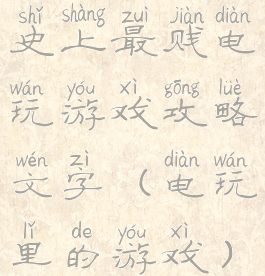 shǐ shàng zuì jiàn diàn
史上最贱电
wán yóu xì gōng lüè
玩游戏攻略
wén zì diàn wán
文字（电玩
lǐ de yóu xì
里的游戏）